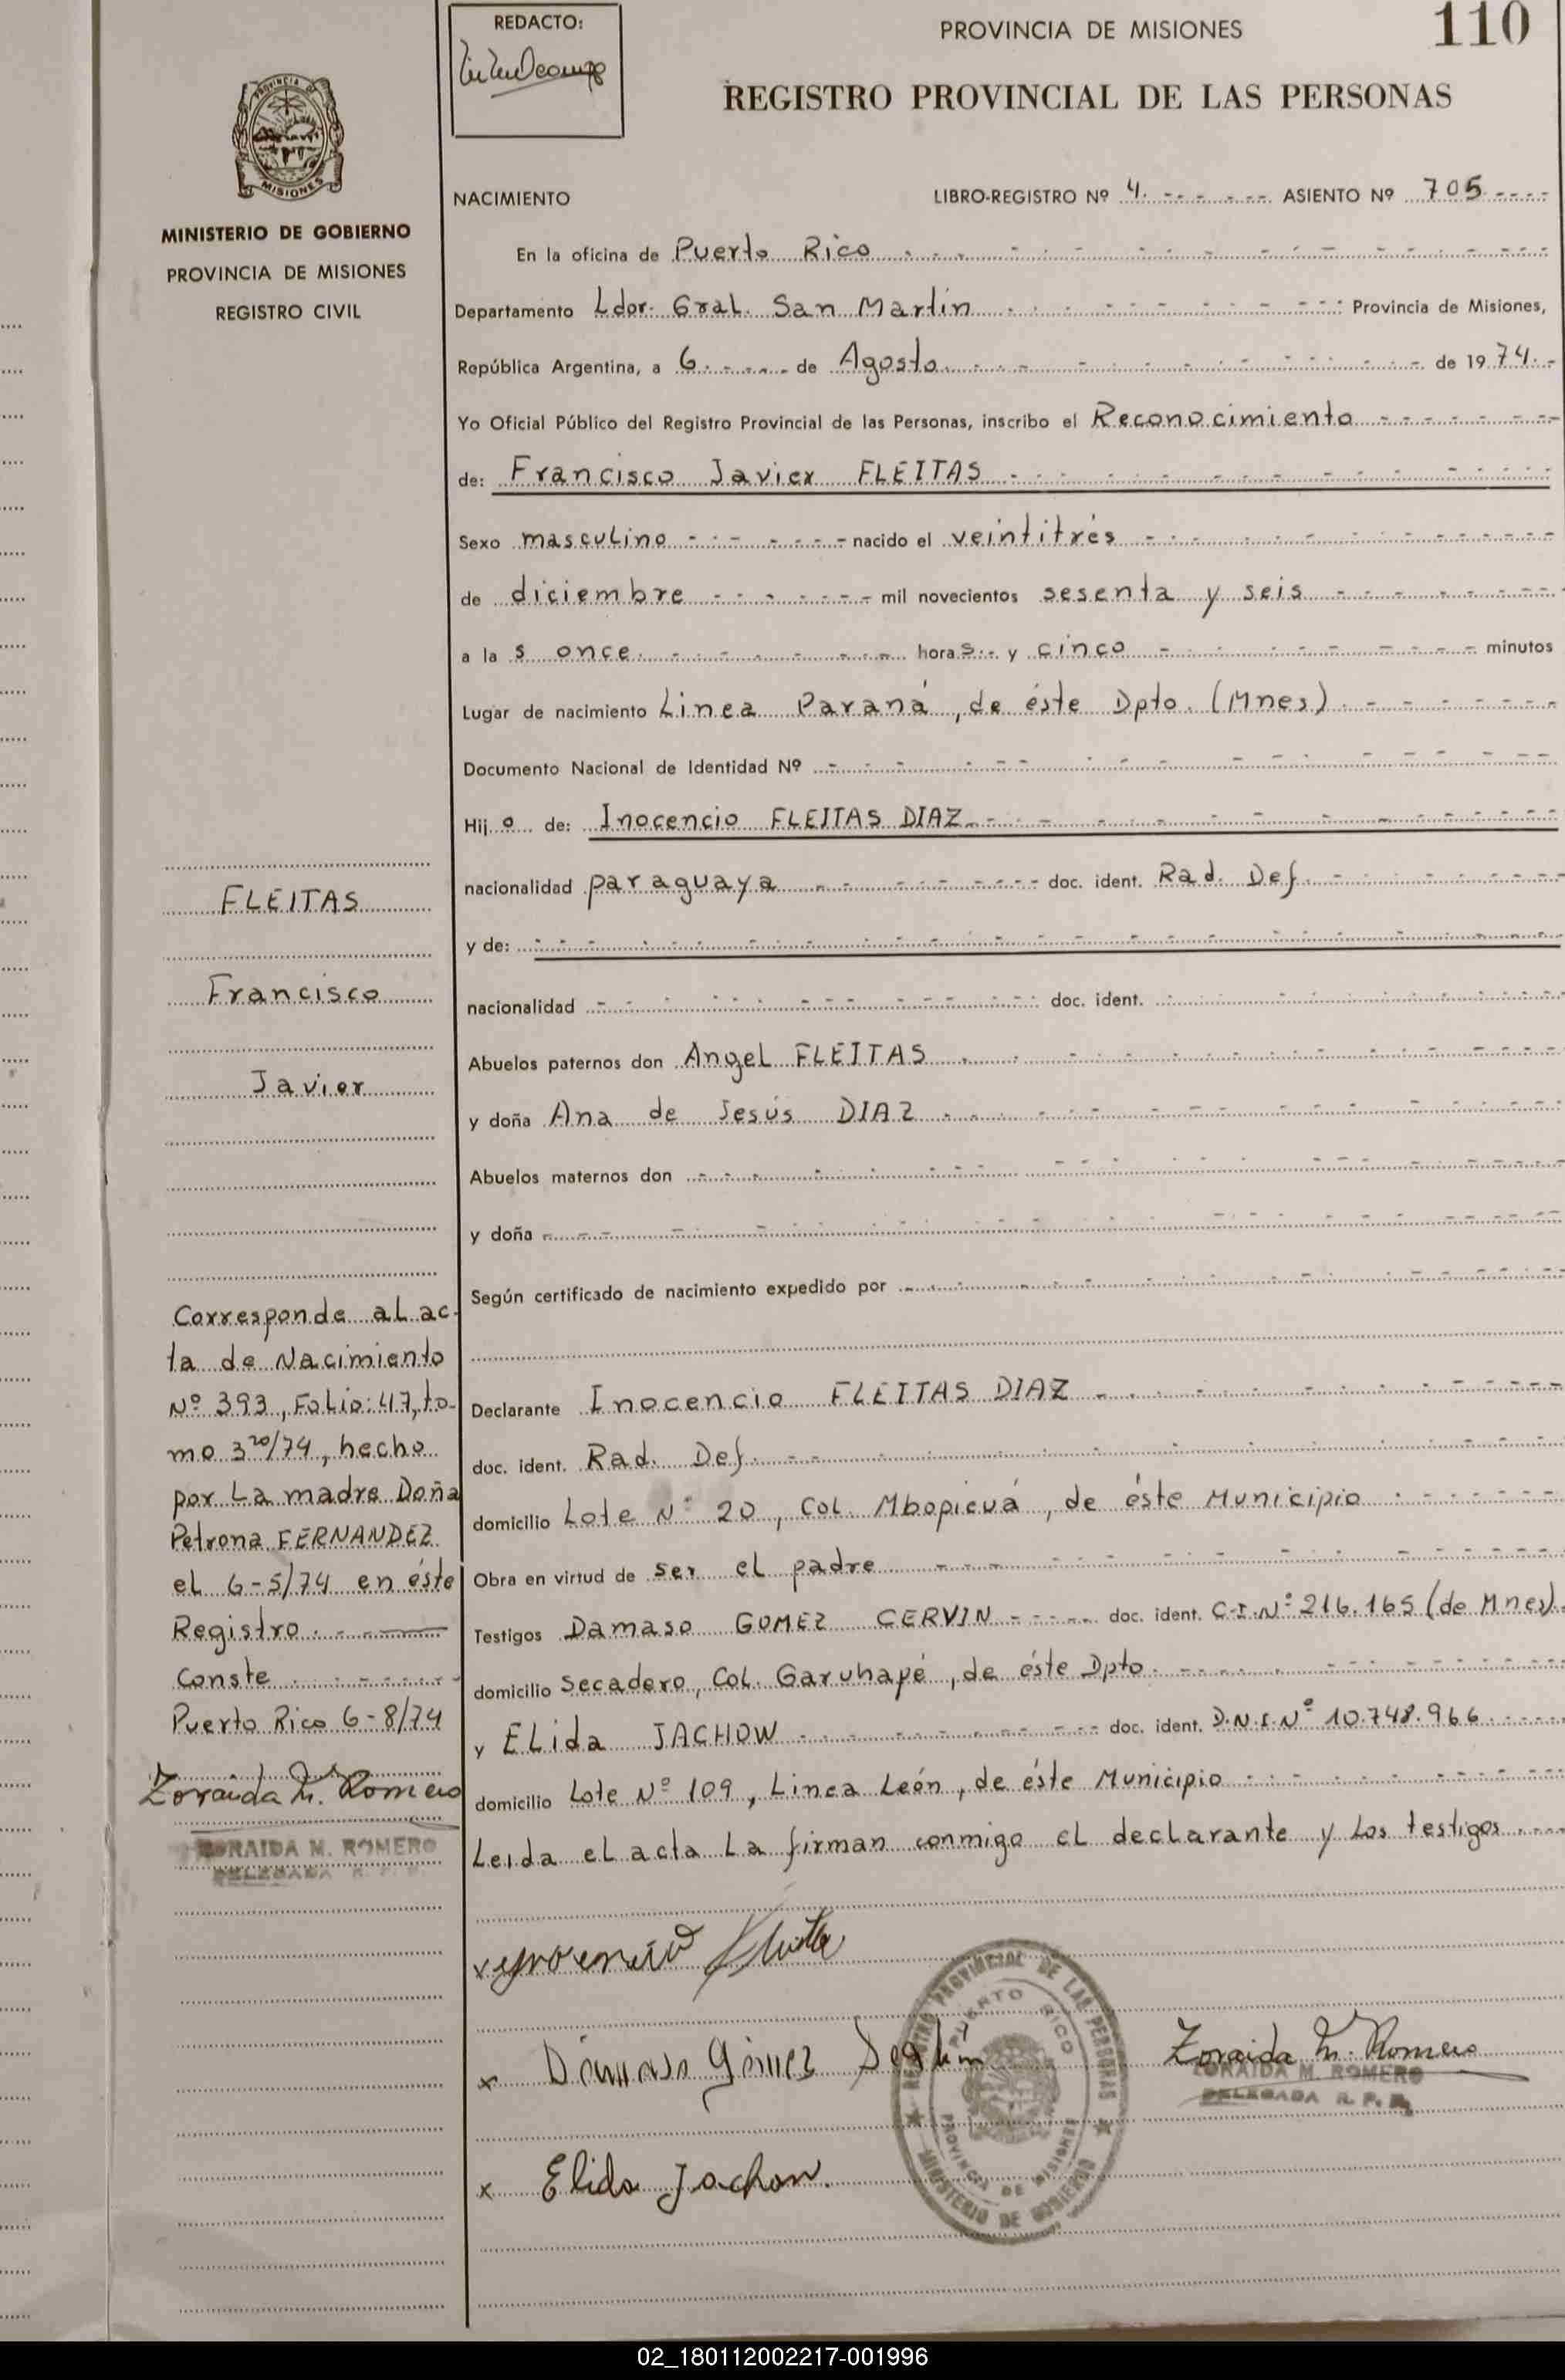 REDACTO:
PROVINCIA DE MISIONES
110
REGISTRO PROVINCIAL DE LAS PERSONAS
PROVINCIA DE
MISIONES
MINISTERIO DE GOBIERNO
PROVINCIA DE MISIONES
REGISTRO CIVIL
NACIMIENTO LIBRO-REGISTRO Nº 4. ASIENTO Nº 705
En la oficina de Puerto Rico
Departamento Ldor. Gral. San Martín Provincia de Misiones,
República Argentina, a 6 de Agosto de 19 74
Yo Oficial Público del Registro Provincial de las Personas, inscribo el Reconocimiento
de: Francisco Javier FLEITAS
Sexo masculino nacido el veintitrés
de diciembre mil novecientos sesenta y seis
a la s once horas y cinco minutos
Lugar de nacimiento Linea Paraná, de éste Dpto. (Mnes)
Documento Nacional de Identidad Nº
Hij o de: Inocencio FLEITAS DIAZ
nacionalidad paraguaya doc. ident. Rad. Def.
y de:
nacionalidad doc. ident.
Abuelos paternos don Angel FLEITAS
y doña Ana de Jesús DIAZ
Abuelos maternos don
y doña
Según certificado de nacimiento expedido por
Declarante Inocencio FLEITAS DIAZ
doc. ident. Rad. Def.
domicilio Lote Nº 20, Col. Mbopicuá, de éste Municipio
Obra en virtud de ser el padre
Testigos Damaso GOMEZ CERVIN doc. ident. C.I.Nº 216.165 (de Mnes).
domicilio Secadero, Col. Garuhapé, de éste Dpto.
y Elida JACHOW doc. ident. D.N.I.Nº 10.748.966
domicilio Lote Nº 109, Linea León, de éste Municipio
Leida el acta La firman conmigo el declarante y Los testigos
FLEITAS
Francisco
Javier
Corresponde al ac-
ta de Nacimiento
Nº 393, Folio: 47, to-
mo 3º/74, hecho
por La madre Doña
Petrona FERNANDEZ
el 6-5/74 en éste
Registro
Conste
Puerto Rico 6-8/74
Zoraida M. Romero
ZORAIDA M. ROMERO
DELEGADA R. P. P.
x Damaso Gómez
x Elida Jachow.
REGISTRO PROVINCIAL DE LAS PERSONAS
PUERTO RICO
PROVINCIA DE MISIONES
MINISTERIO DE GOBIERNO
Zoraida M. Romero
ZORAIDA M. ROMERO
DELEGADA R. P. P.
02_180112002217-001996